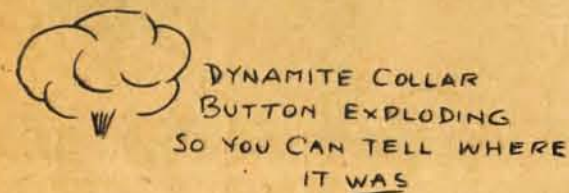 DYNAMITE COLLAR
BUTTON EXPLODING
SO YOU CAN TELL WHERE
IT WAS